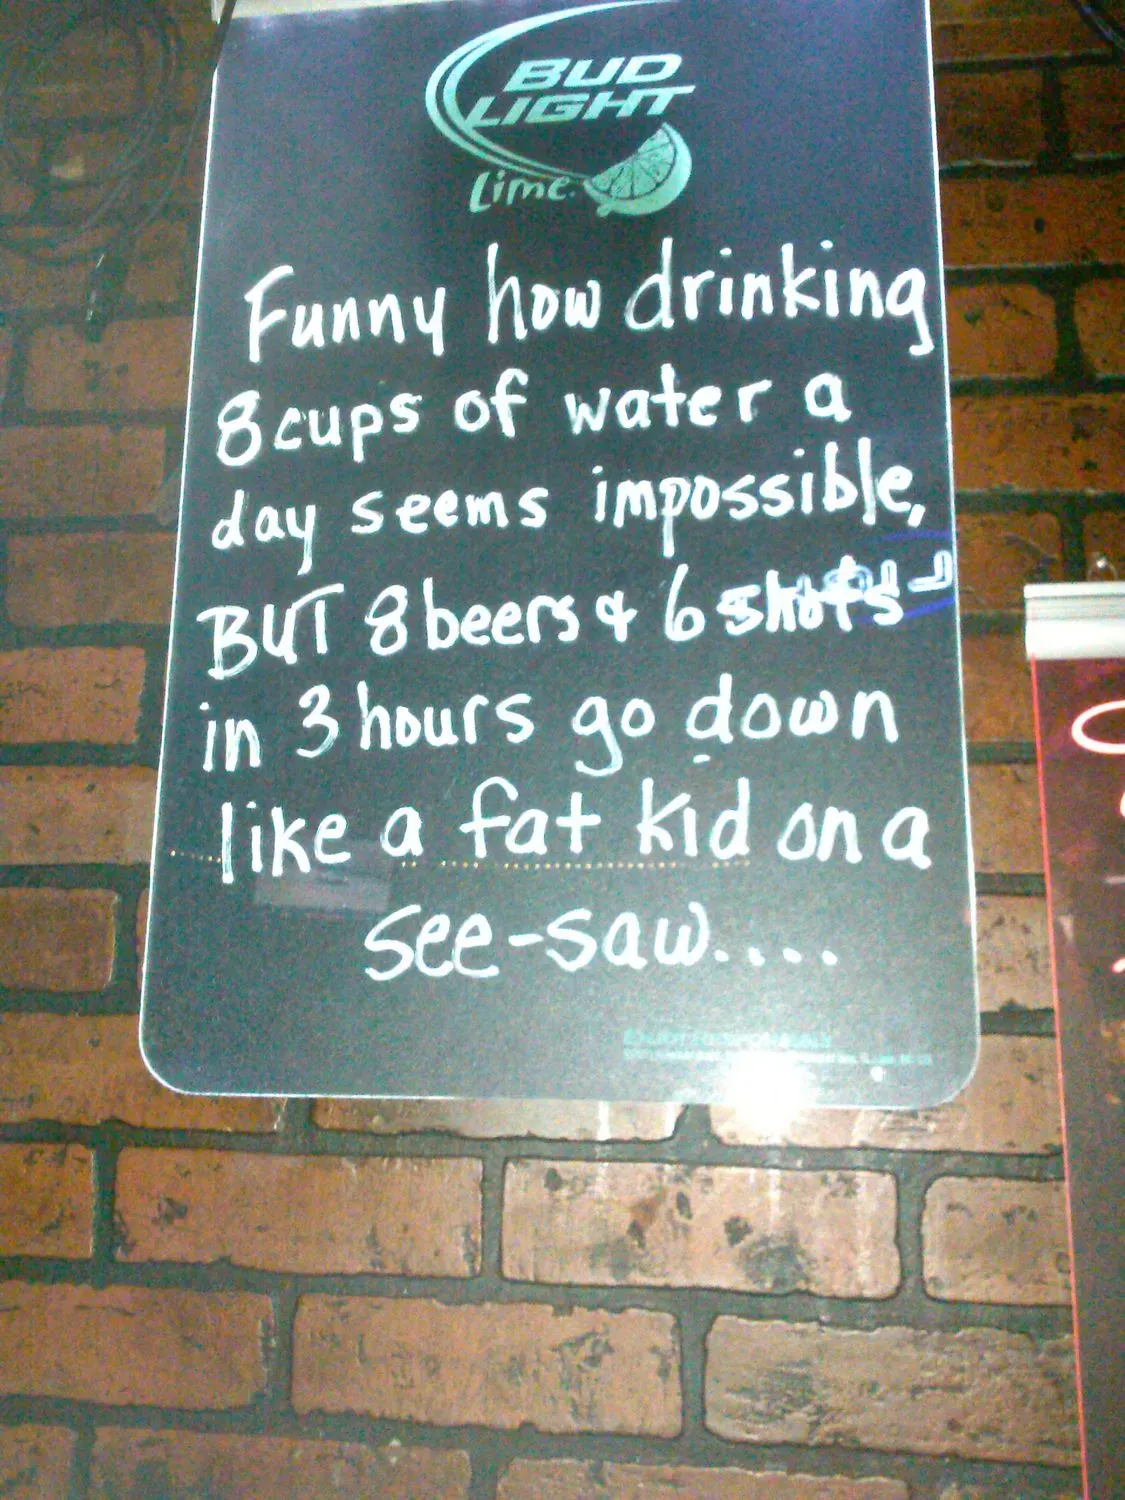 BUD
LIGHT
Lime.
Funny how drinking
8 cups of water a
day seems impossible,
BUT 8 beers & 6 shots
in 3 hours go down
like a fat kid on a
see-saw....